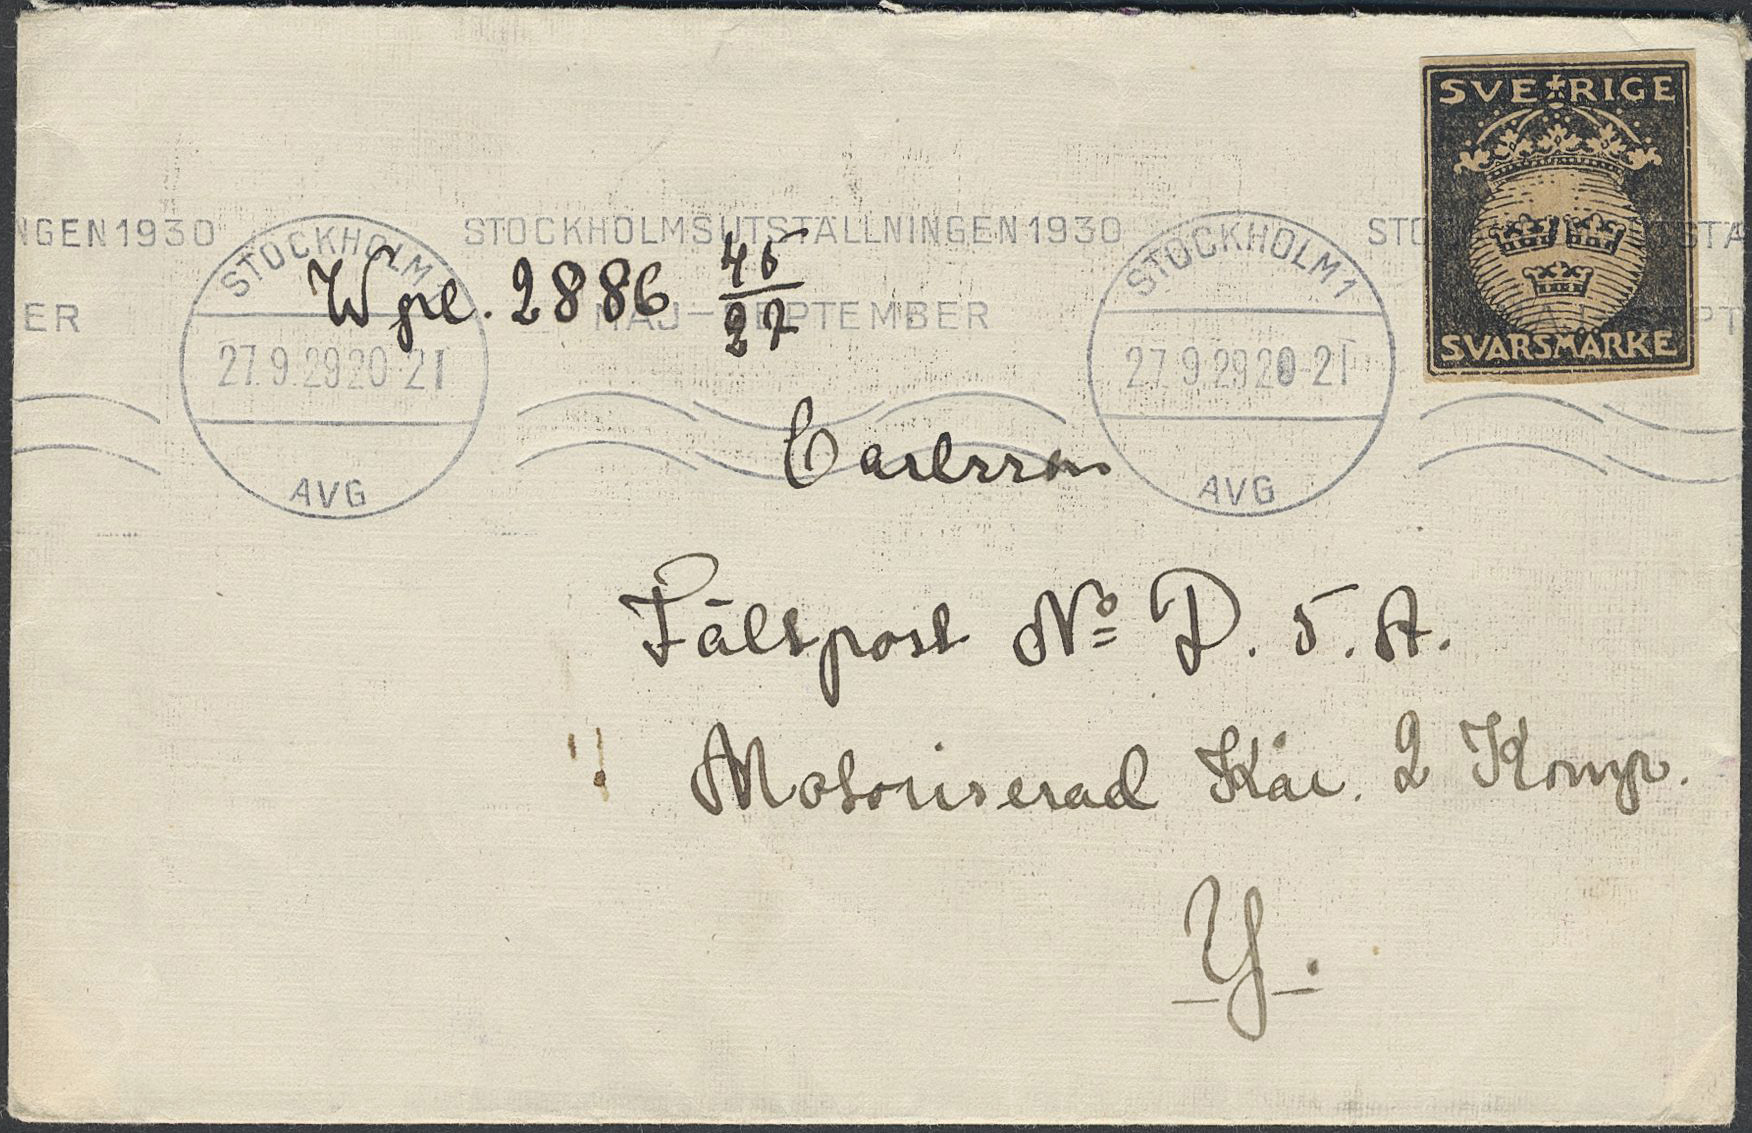 SVERIGE
SVARSMÄRKE
NGEN 1930 STOCKHOLMSUTSTÄLLNINGEN 1930 STO STÄ
ER MAJ-SEPTEMBER PT
STOCKHOLM 1
27.9.29 20-21
AVG
STOCKHOLM 1
27.9.29 20-21
AVG
Wpl. 2886 45/27
Carlsson
Fältpost No D. 5. A.
Motoriserad Kår. 2 Komp.
Y.